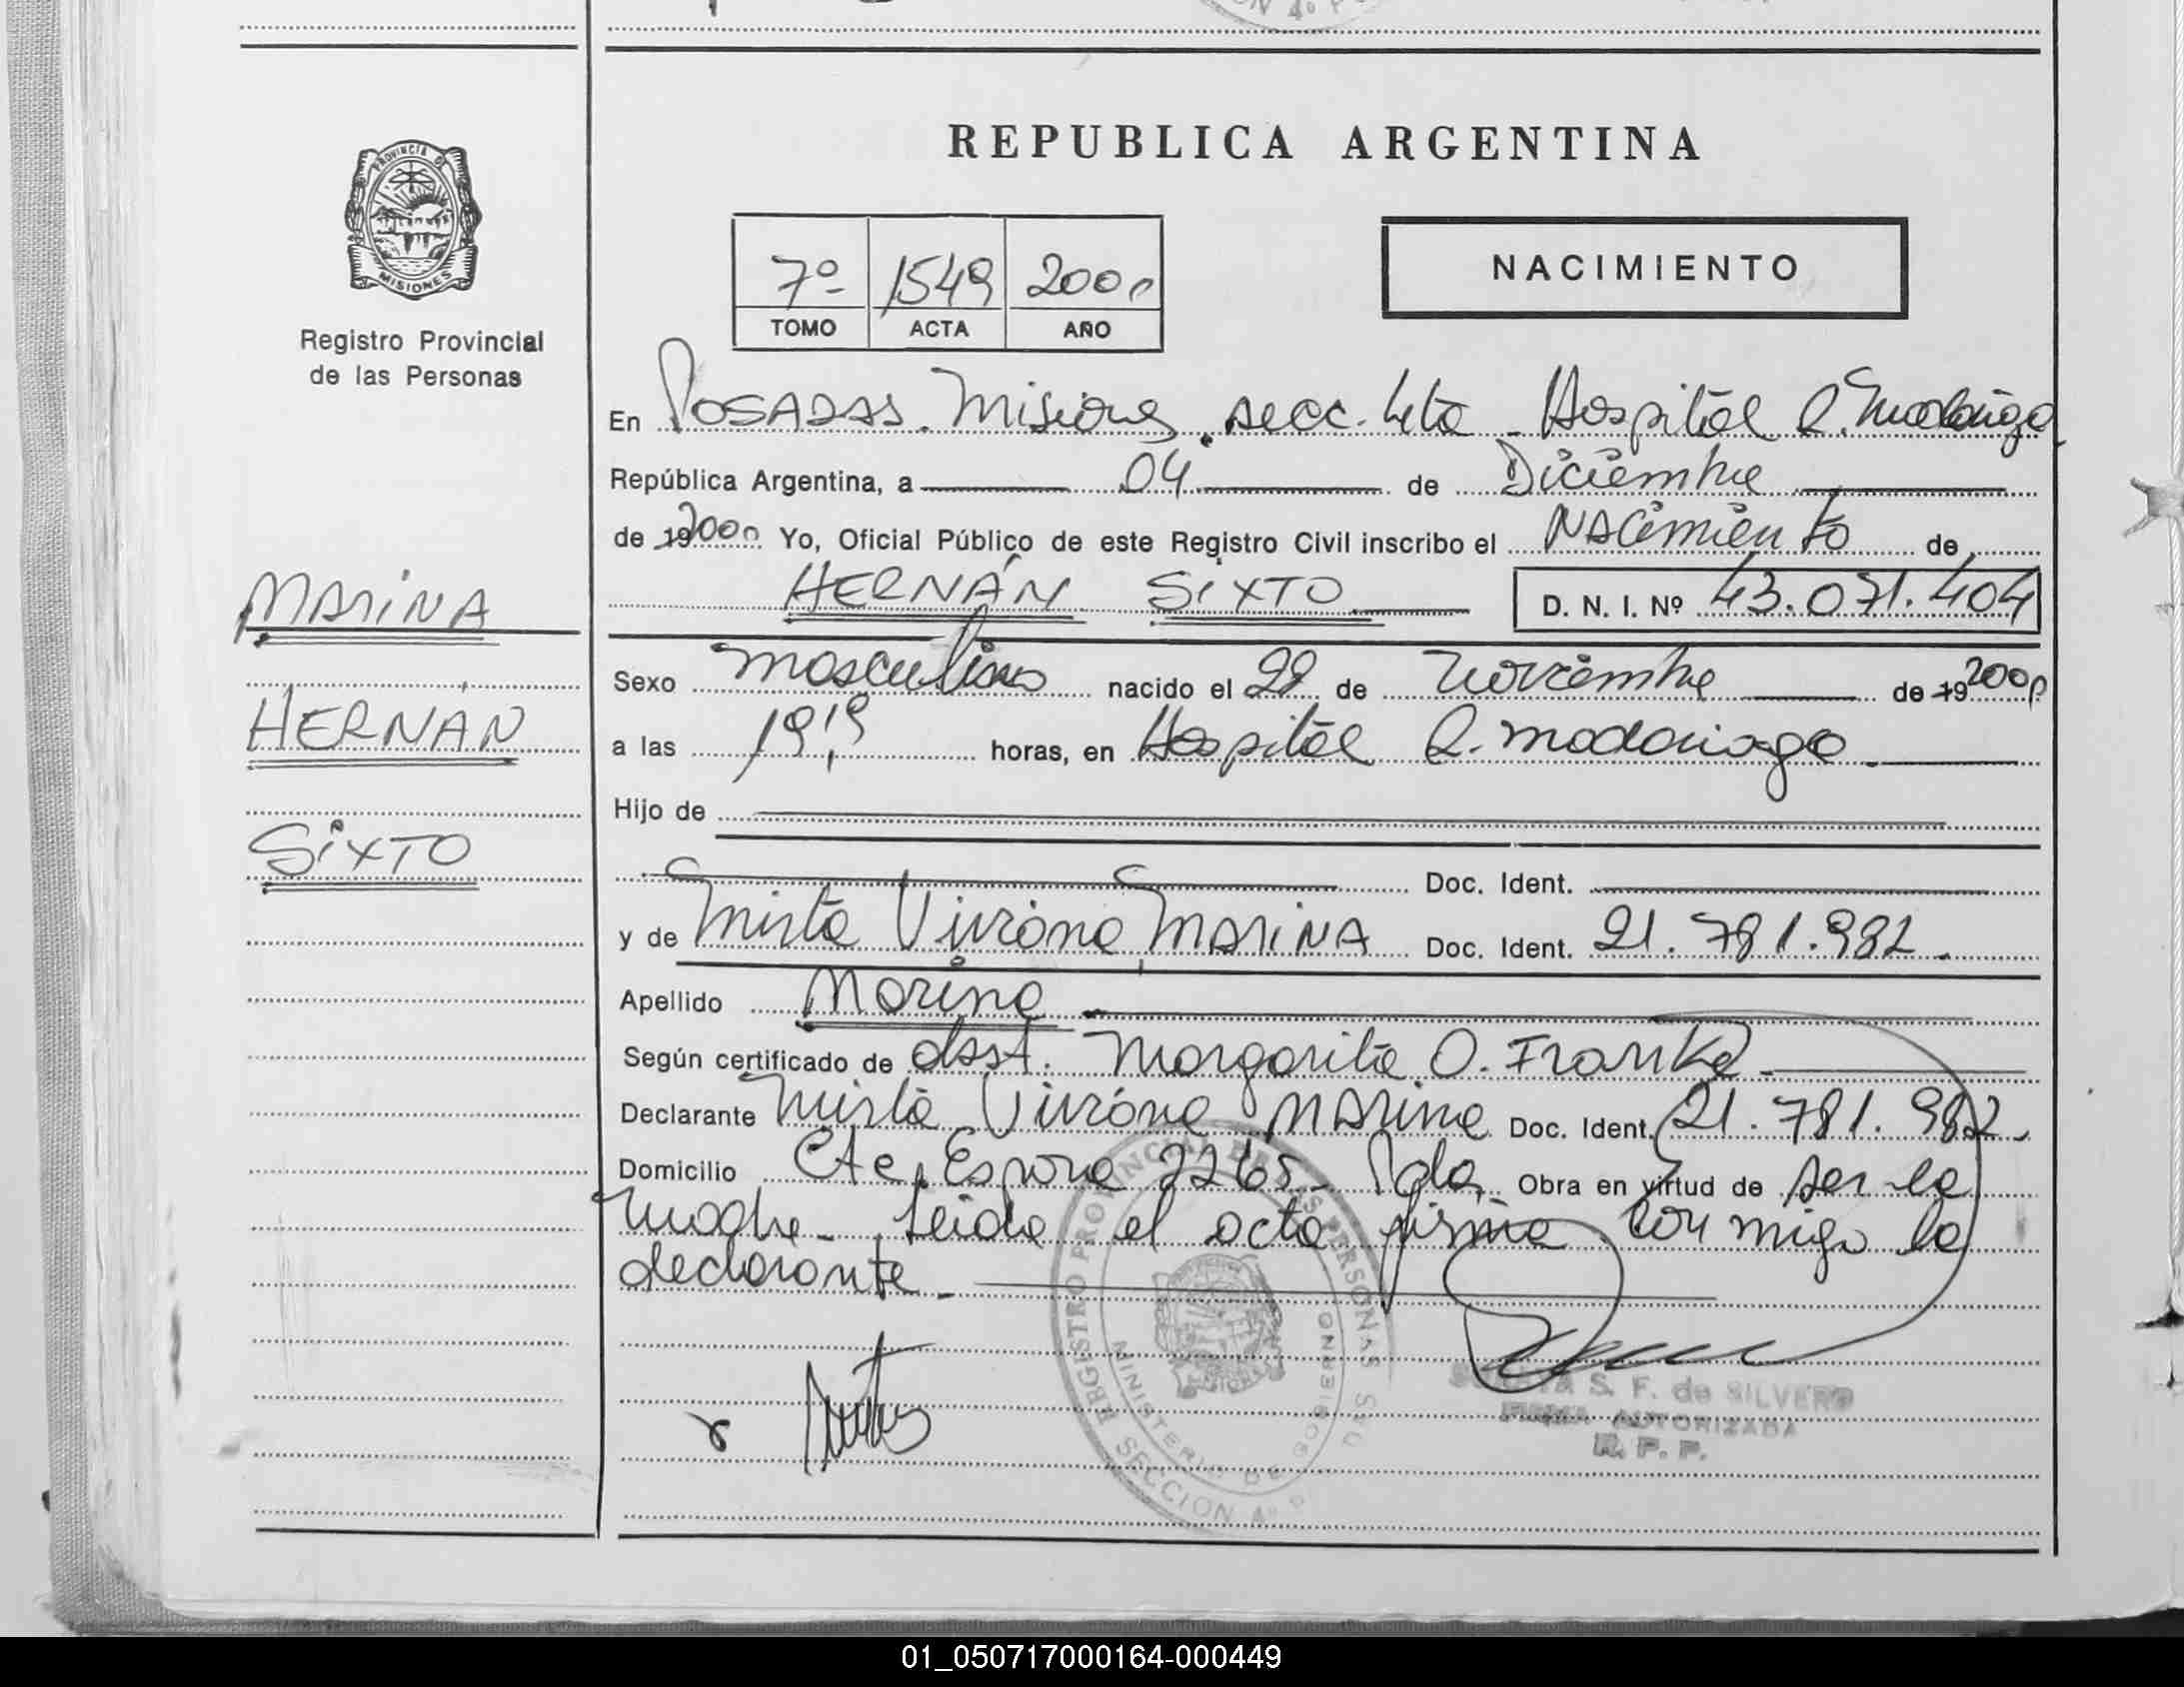 REPUBLICA ARGENTINA
PROVINCIA D
MISIONES
Registro Provincial
de las Personas
7º 1549 2000
TOMO ACTA AÑO
NACIMIENTO
En POSADAS. Misiones. secc. 4ta - Hospital R. Madariaga
República Argentina, a 04 de Diciembre
de 19 2000 Yo, Oficial Público de este Registro Civil inscribo el NACimiento de
HERNÁN SIXTO D. N. I. Nº 43.071.404
MARINA
HERNÁN
SIXTO
Sexo masculino nacido el 22 de noviembre de 19 2000
a las 19,15 horas, en Hospital R. Madariaga.
Hijo de
Doc. Ident.
y de Mirta Viviana MARINA Doc. Ident. 21.781.982.
Apellido Marina
Según certificado de obst. Margarita O. Franke
Declarante Mirta Viviana MARINA Doc. Ident. 21.781.982.
Domicilio Cte. Espora 2265 - Pdas. Obra en virtud de ser la
madre. Leida el acta firma conmigo la
declarante.
REGISTRO PROVINCIAL DE LAS PERSONAS
MINISTERIO DE GOBIERNO
SECCION 4º P
S. F. de SILVERO
FIRMA AUTORIZADA
R. P. P.
01_050717000164-000449